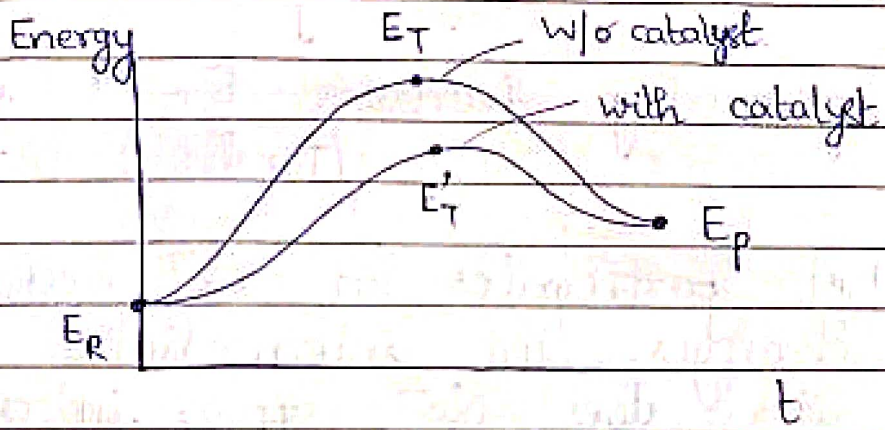 Energy
E_T
W/o catalyst
with catalyst
E'_T
E_P
E_R
t